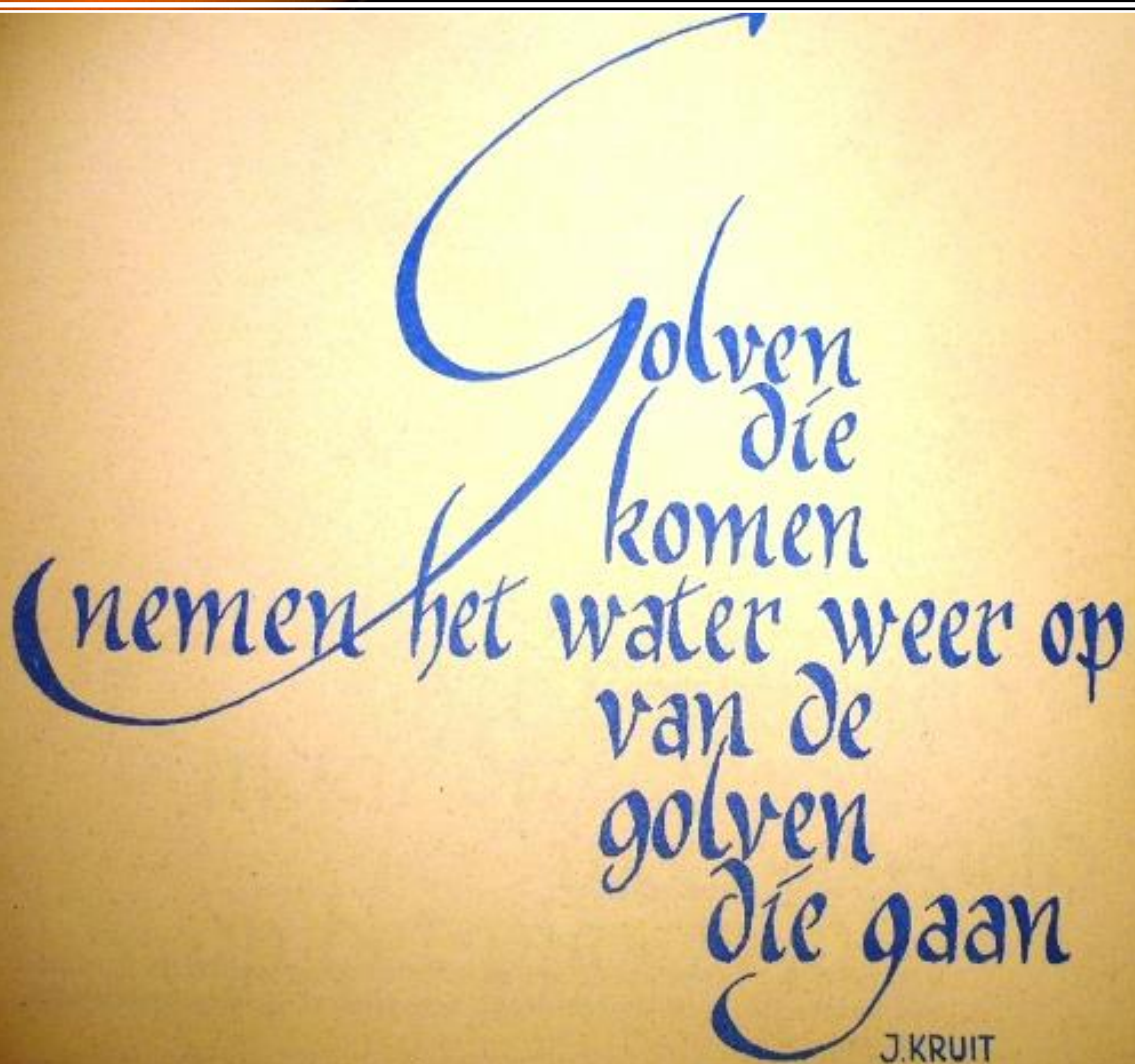 Golven
die
komen
nemen het water weer op
van de
golven
die gaan
J.KRUIT